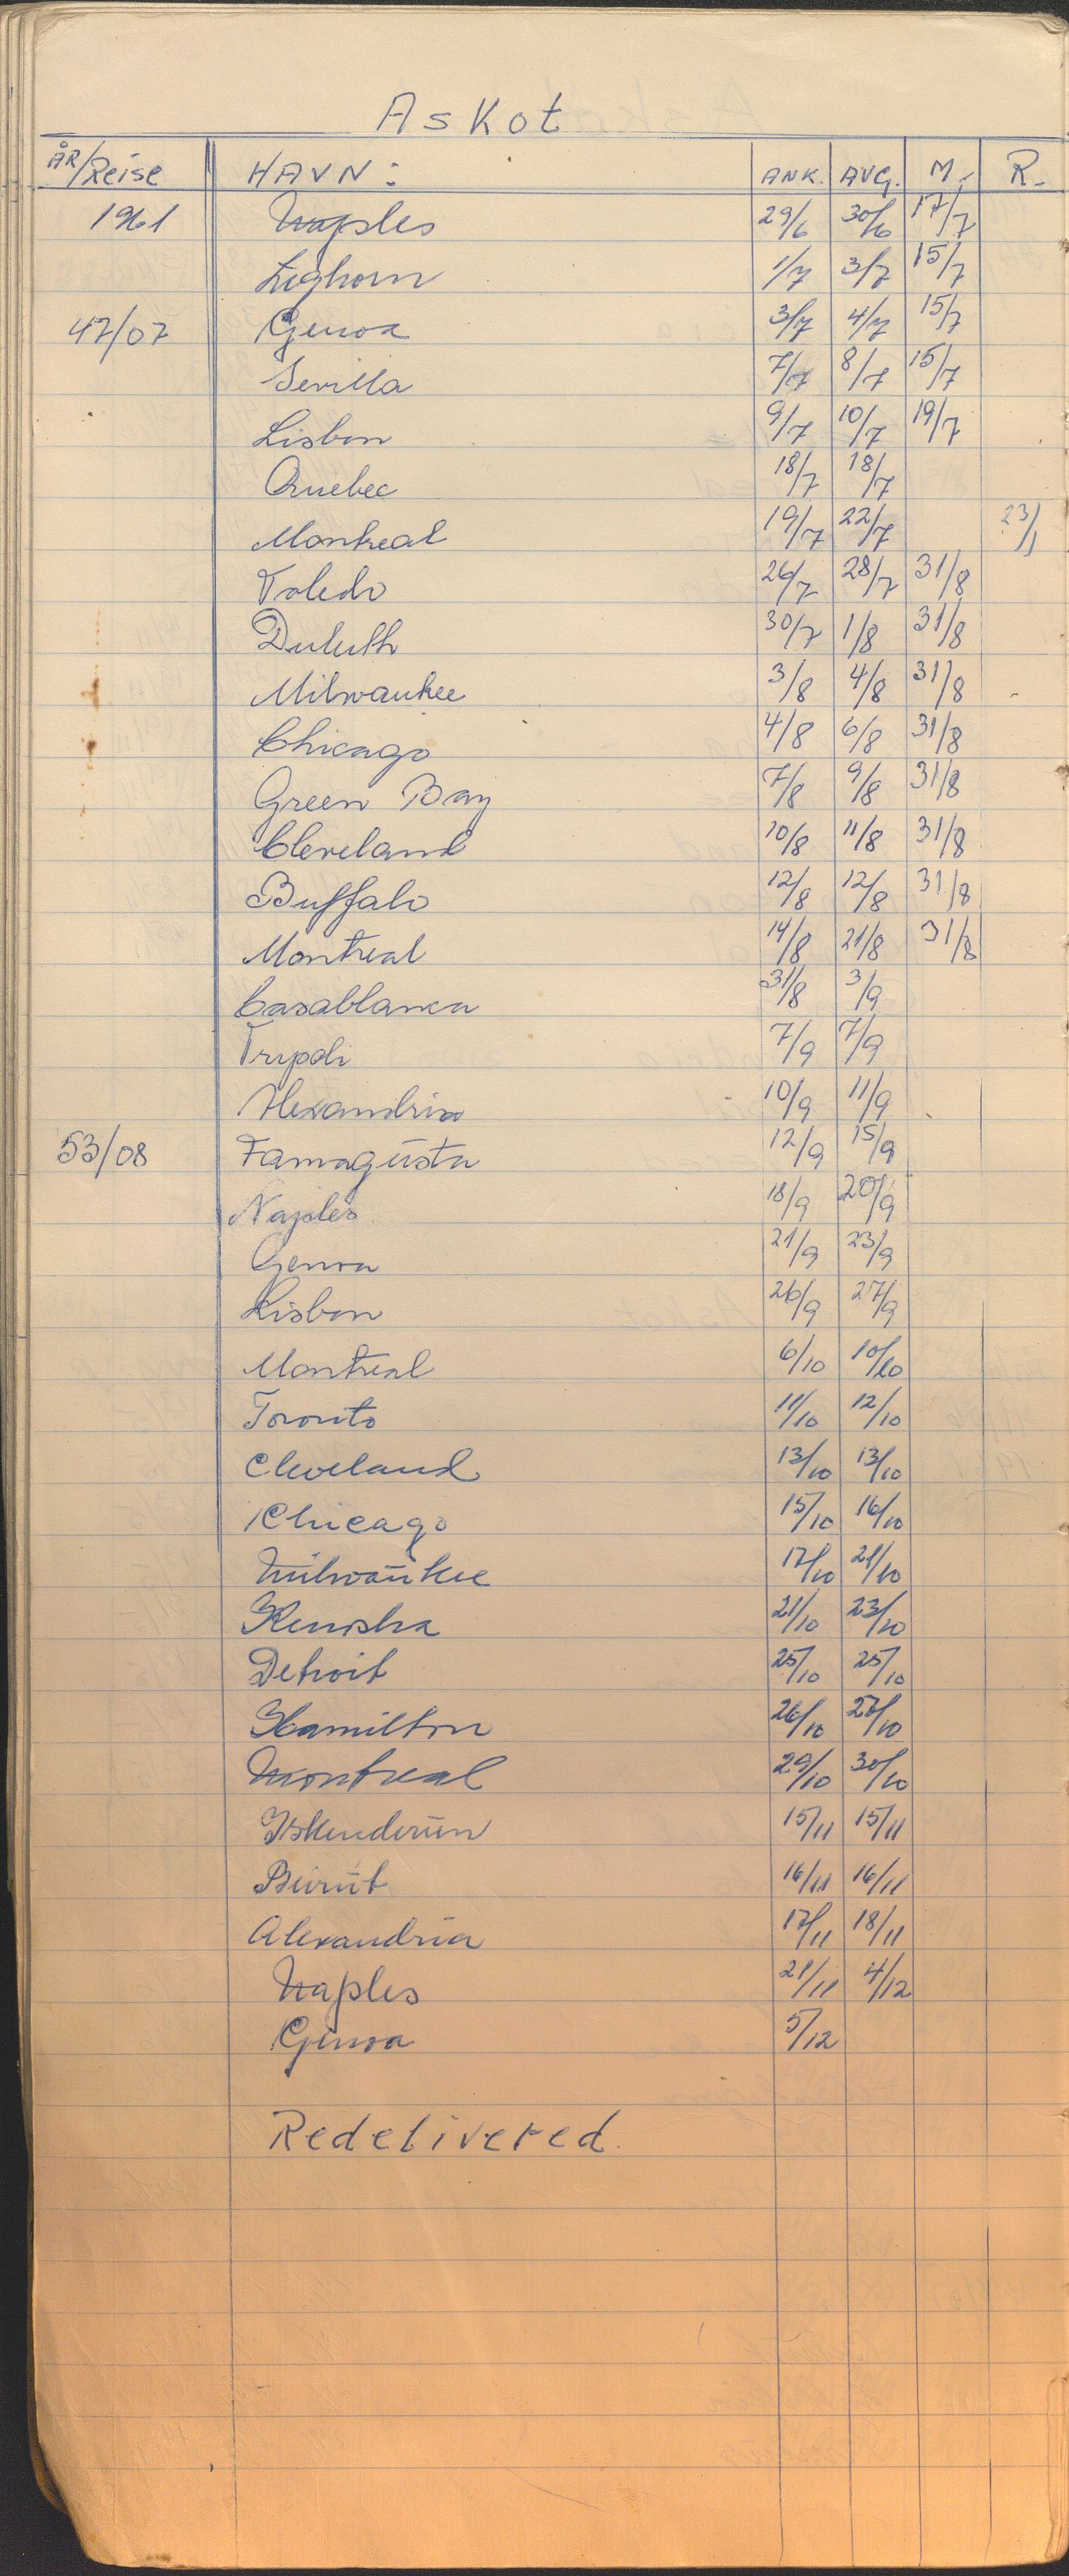 Askot
ÅR/Reise HAVN: ANK. AVG. M. R.
1961 Naples 29/6 30/6 17/7
Leghorn 1/7 3/7 15/7
47/07 Genoa 3/7 4/7 15/7
Sevilla 7/7 8/7 15/7
Lisbon 9/7 10/7 19/7
Quebec 18/7 18/7
Montreal 19/7 22/7 23/1
Toledo 26/7 28/7 31/8
Duluth 30/7 1/8 31/8
Milwaukee 3/8 4/8 31/8
Chicago 4/8 6/8 31/8
Green Bay 7/8 9/8 31/8
Cleveland 10/8 11/8 31/8
Buffalo 12/8 12/8 31/8
Montreal 14/8 21/8 31/8
Casablanca 31/8 3/9
Tripoli 7/9 7/9
Alexandria 10/9 11/9
53/08 Famagusta 12/9 15/9
Naples 18/9 20/9
Genoa 21/9 23/9
Lisbon 26/9 27/9
Montreal 6/10 10/10
Toronto 11/10 12/10
Cleveland 13/10 13/10
Chicago 15/10 16/10
Milwaukee 17/10 21/10
Kenosha 21/10 23/10
Detroit 25/10 25/10
Hamilton 26/10 27/10
Montreal 29/10 30/10
Iskenderun 15/11 15/11
Beirut 16/11 16/11
Alexandria 17/11 18/11
Naples 21/11 4/12
Genoa 5/12
Redelivered.